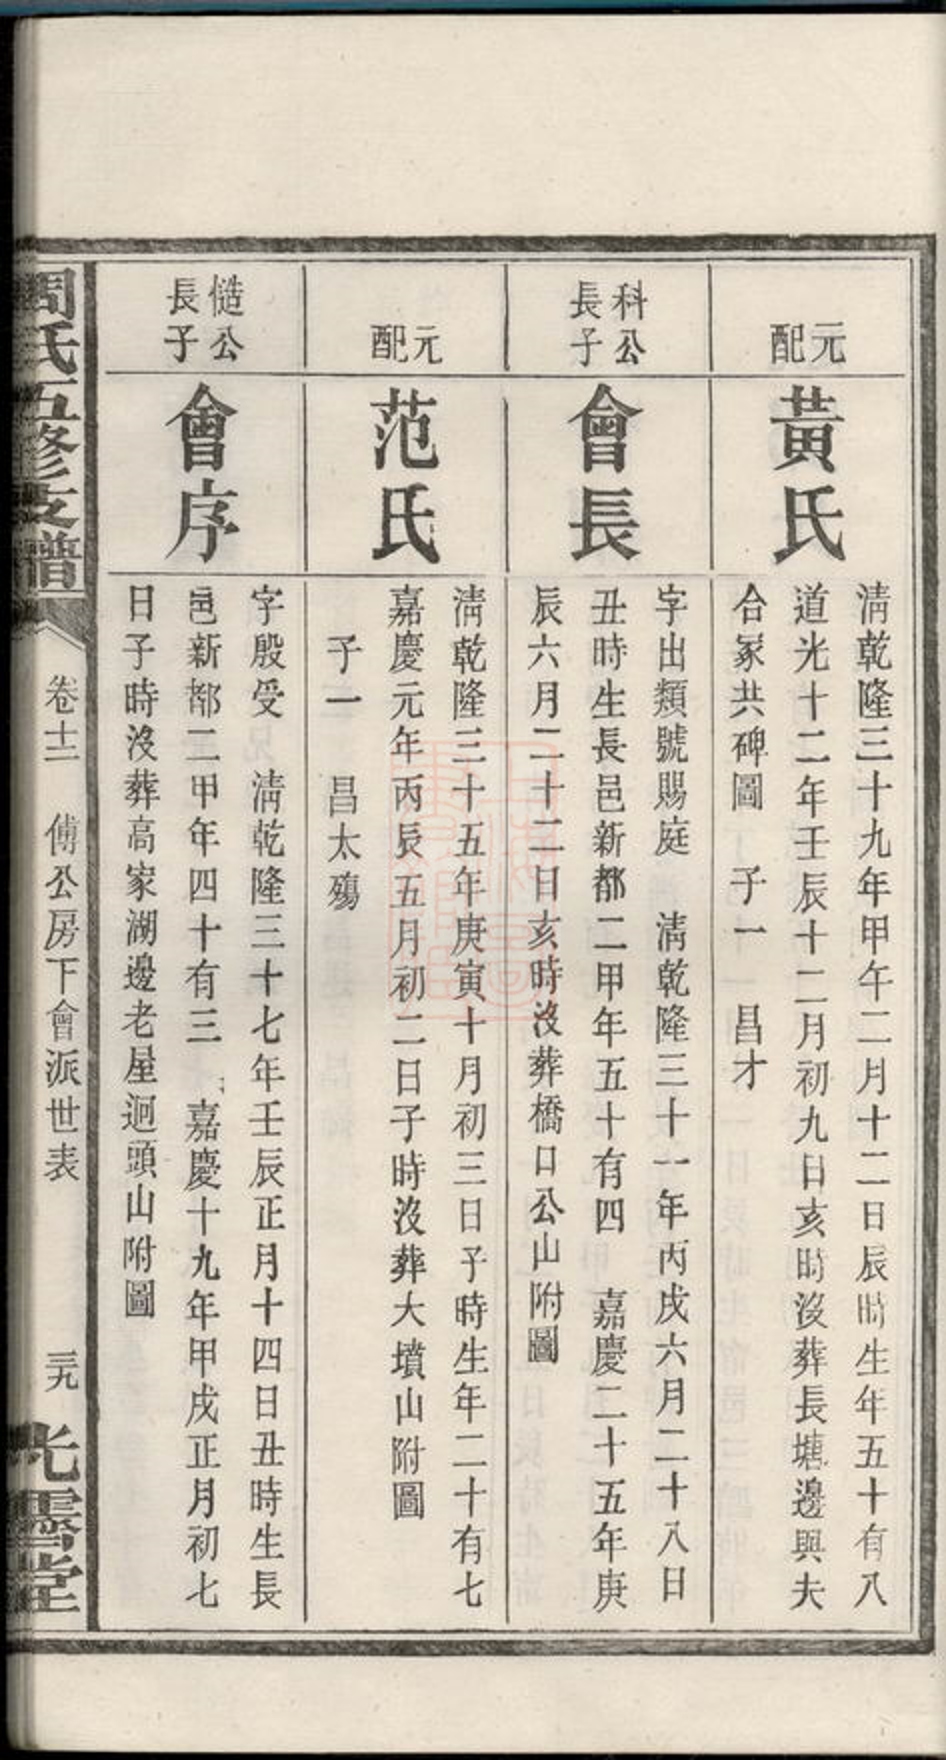 元配
黃氏
淸乾隆三十九年甲午二月十二日辰時生年五十有八
道光十二年壬辰十二月初九日亥時沒葬長塘邊與夫
合冢共碑圖 子一 昌才
科公
長子
會長
字出類號賜庭 淸乾隆三十一年丙戌六月二十八日
丑時生長邑新都二甲年五十有四 嘉慶二十五年庚
辰六月二十二日亥時沒葬橋口公山附圖
元配
范氏
淸乾隆三十五年庚寅十月初三日子時生年二十有七
嘉慶元年丙辰五月初二日子時沒葬大墳山附圖
子一 昌太殤
公
長子
會序
字殷受 淸乾隆三十七年壬辰正月十四日丑時生長
邑新都二甲年四十有三 嘉慶十九年甲戌正月初七
日子時沒葬高家湖邊老屋迴頭山附圖
周氏五修支譜
卷十二 傅公房下會派世表
三九
光霽堂